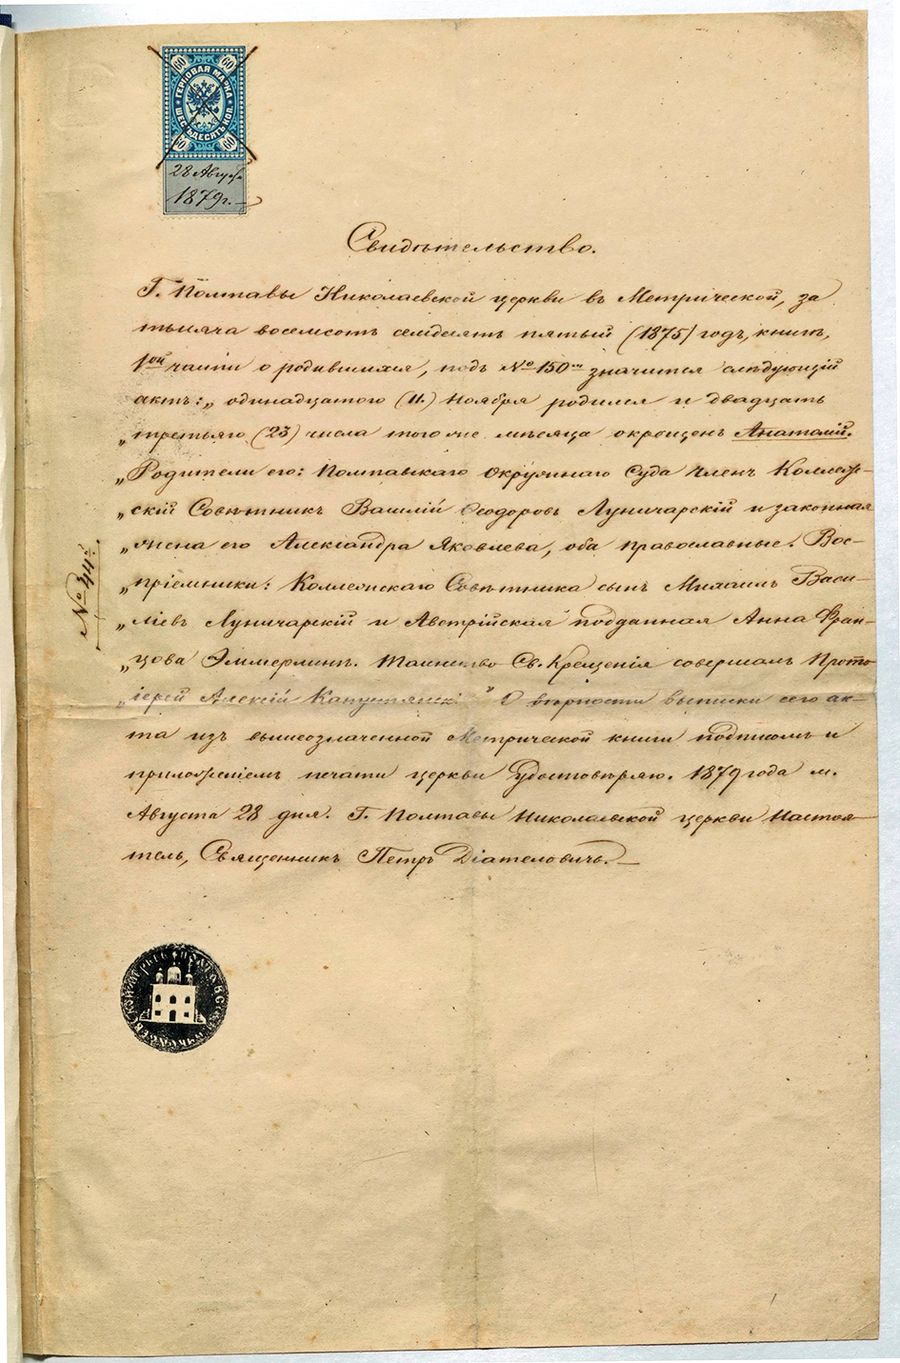 60 60
ГЕРБОВАЯ МАРКА
ШЕСТЬДЕСЯТЪ КОП.
60 60
28 Августа
1879 г.
Свидѣтельство.
Г. Полтавы Николаевской церкви въ Метрической, за
тысяча восемсотъ семдесятъ пятый (1875) годъ, книгѣ,
1ой части о родившихся, подъ № 150м значится слѣдующій
актъ: „одинадцатого (11.) Ноября родился и двадцать
„третьяго (23) числа того же мѣсяца окрещенъ Анатолій.
„Родители его: Полтавскаго Окружнаго Суда Членъ Коллеж-
„скій Совѣтникъ Василій Ѳеодоровъ Луначарскій и законная
„жена его Александра Яковлева, оба православные. Вос-
„пріемники: Коллежскаго Совѣтника сынъ Михаилъ Васи-
„ліевъ Луначарскій и Австрійская подданная Анна Фран-
„цова Эммерлингъ. Таинство Св. Крещенія совершалъ Прото-
„іерей Алексій Капустянскій“ О вѣрности выписки сего ак-
та изъ вышеозначенной Метрической книги подписомъ и
приложеніемъ печати церкви удостовѣряю. 1879 года м.
Августа 28 дня. Г. Полтавы Николаевской церкви Настоя-
тель, Священникъ Петръ Діателовичъ.
№ 44й.